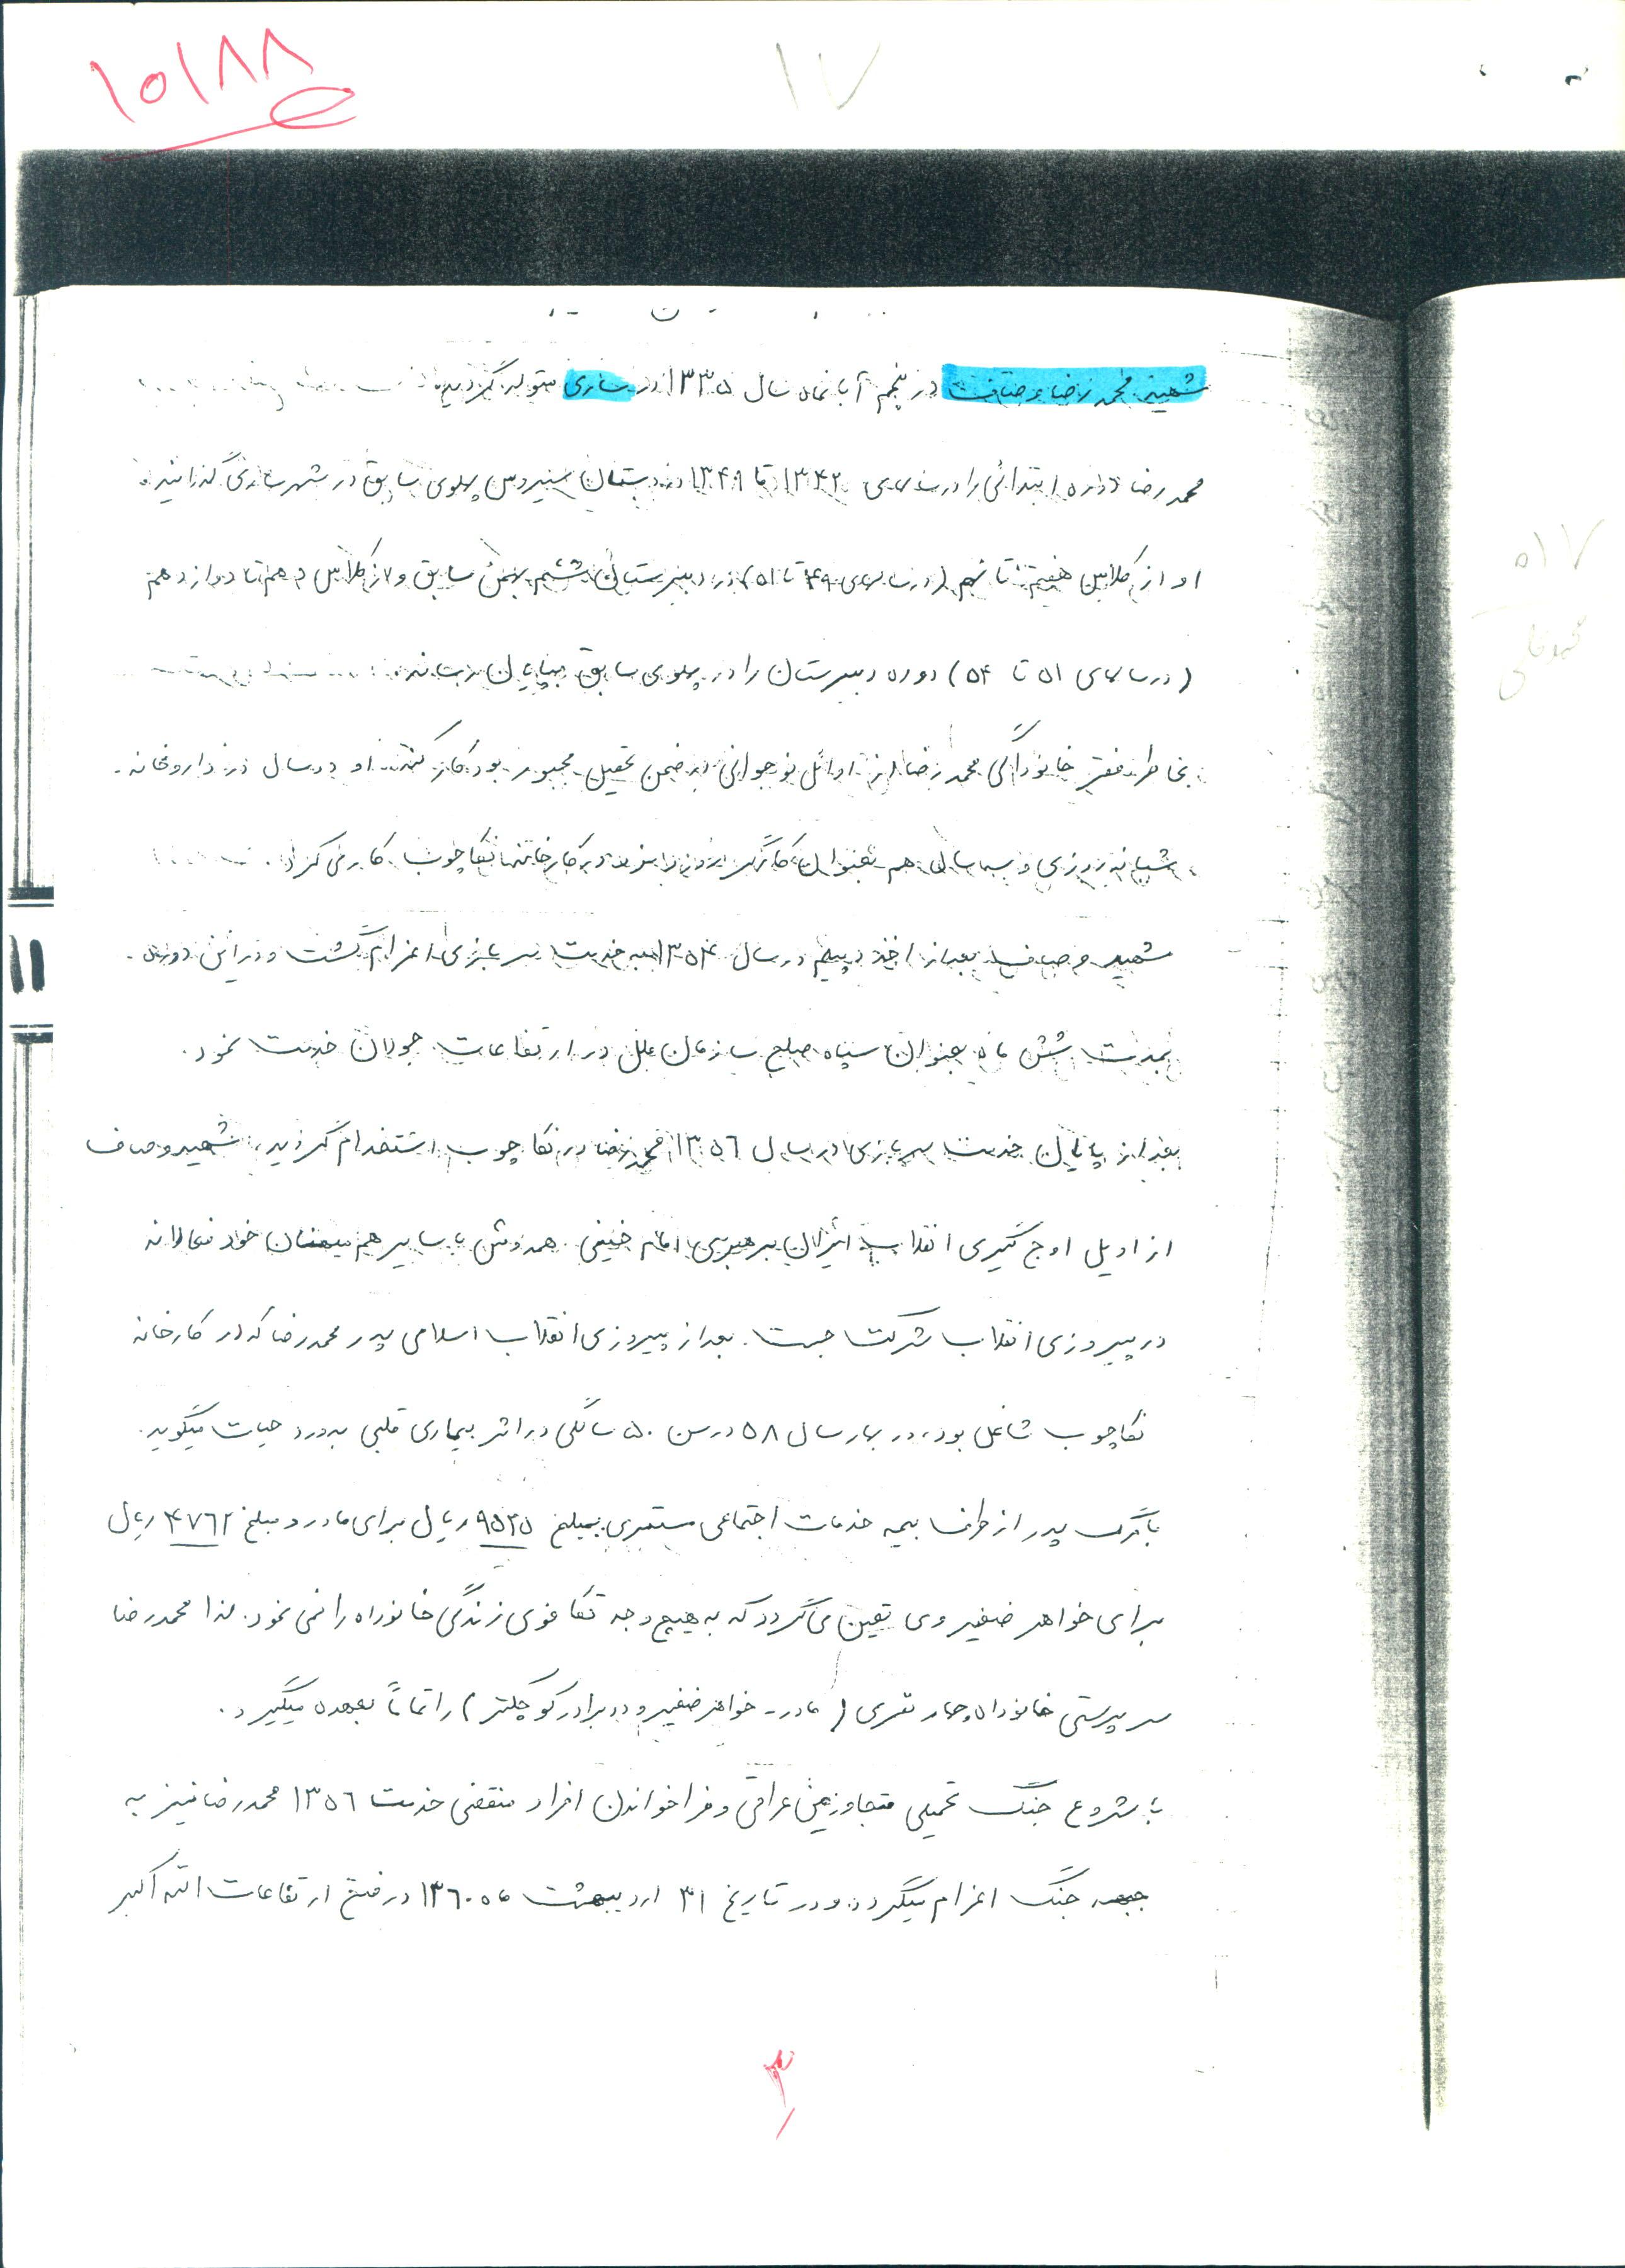 ۱۰۱۸۸
۱۷
شهید محمدرضا وصاف در پنجم آبانماه سال ۱۳۳۵ در ساری متولد گردید.
محمدرضا دوره ابتدائی را در سالهای ۱۳۴۲ تا ۱۳۴۸ در دبستان سیروس پهلوی سابق در شهر ساری گذرانید.
او از کلاس هفتم تا نهم (در سالهای ۴۹ تا ۵۱) در دبیرستان ششم بهمن سابق و از کلاس دهم تا دوازدهم
(در سالهای ۵۱ تا ۵۴) دوره دبیرستان را در پهلوی سابق بپایان رساند.
بخاطر فقر خانوادگی محمدرضا از اوائل نوجوانی در ضمن تحصیل مجبور بود کار کند. او دو سال در داروخانه
شبانه روزی و سه سال هم بعنوان کارگر روزمزد در کارخانه نکاچوب کار می کرد.
شهید وصاف بعد از اخذ دیپلم در سال ۱۳۵۴ به خدمت سربازی اعزام گشت و در این دوره
بمدت شش ماه بعنوان سپاه صلح سازمان ملل در ارتفاعات جولان خدمت نمود.
بعد از پایان خدمت سربازی در سال ۱۳۵۶ محمدرضا در نکا چوب استخدام گردید، شهید وصاف
از اویل اوج گیری انقلاب ایران برهبری امام خمینی همدوش با سایر هم میهنان خود فعالانه
در پیروزی انقلاب شرکت جست. بعد از پیروزی انقلاب اسلامی پدر محمدرضا که در کارخانه
نکاچوب شاغل بود، در بهار سال ۵۸ در سن ۵۰ سالگی در اثر بیماری قلبی بدرود حیات میگوید.
با مرگ پدر از طرف بیمه خدمات اجتماعی مستمری بمبلغ ۹۵۲۵ ریال برای مادر و مبلغ ۴۷۶۲ ریال
برای خواهر صغیر وی تعین می گردد که به هیچ وجه تکافوی زندگی خانوراه را نمی نمود. لذا محمدرضا
سرپرستی خانوداه چهار نفری (مادر - خواهر صغیر و دو برادر کوچکتر) را تماماً بعهده میگیرد.
با شروع جنگ تحمیلی متجاوزین عراقی و فراخواندن افراد منقضی خدمت ۱۳۵۶ محمدرضا نیز به
جبهه جنگ اعزام میگردد. و در تاریخ ۳۱ اردیبهشت ماه ۱۳۶۰ در فتح ارتفاعات الله اکبر
۱۱
۳